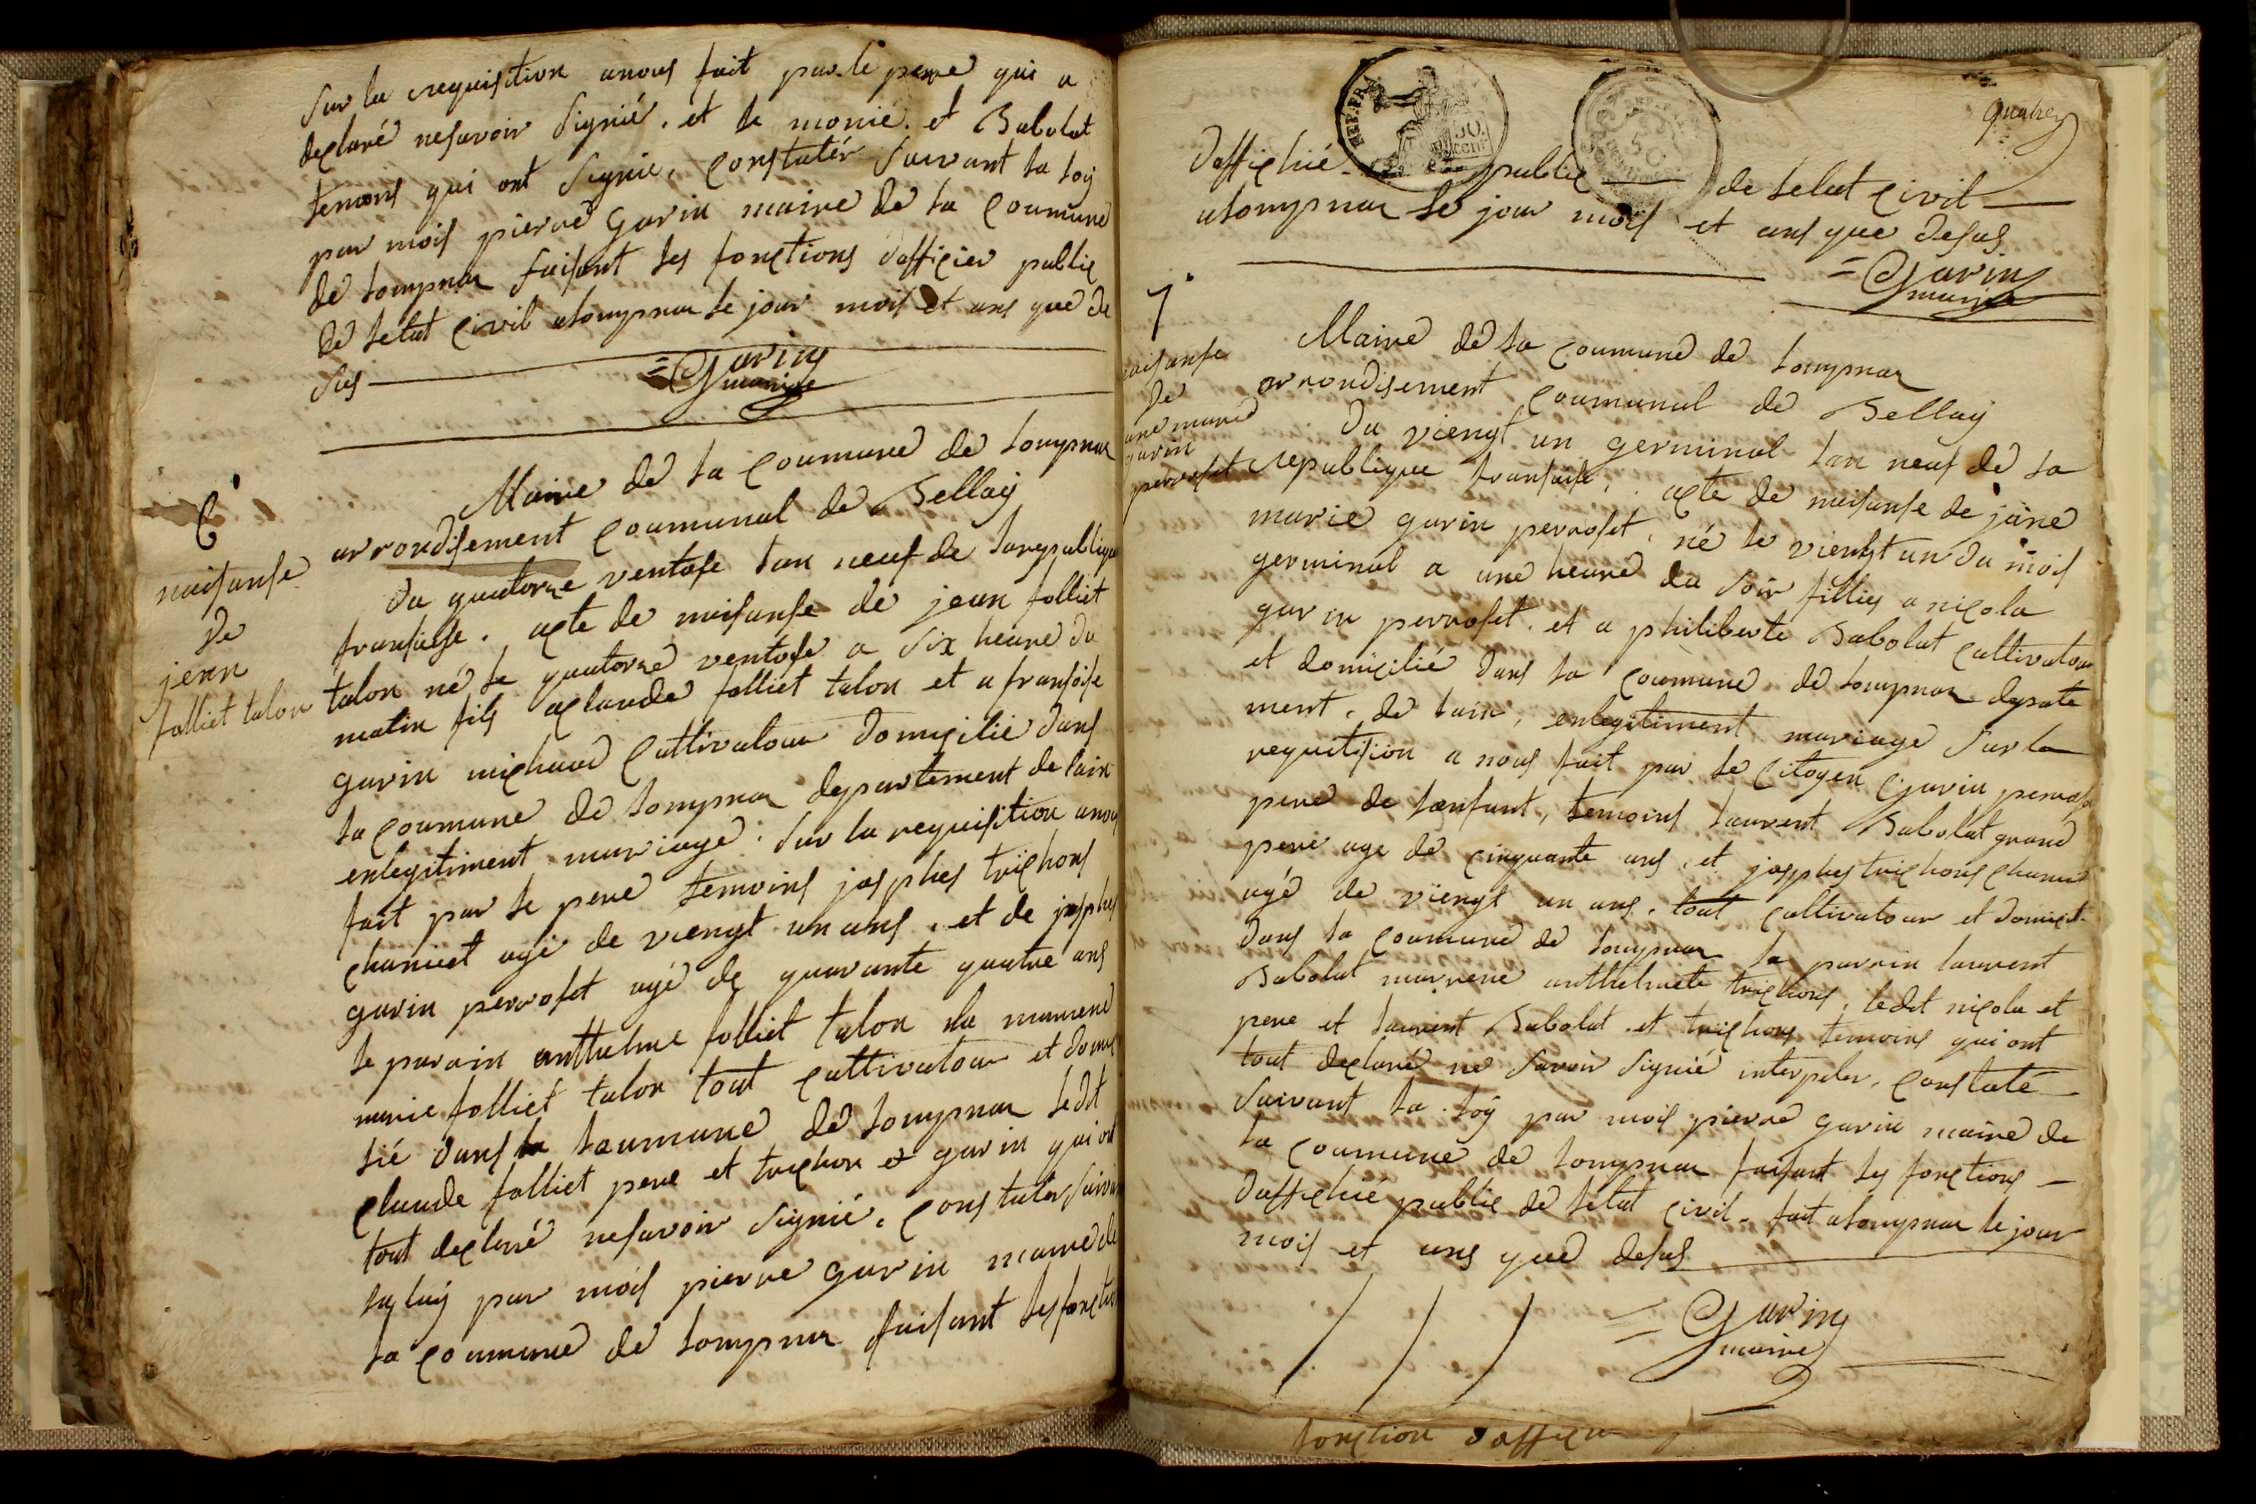 Sur la requisition anous fait par le pere qui a
declaré nesavoir Signié. et le monié. et Babolat
temoins qui ont Signié, constatér Suivant la loÿ
par mois pierre Garin maire de la coumune
de lompnas faisant les fonctions dofficier public
de letat civil alompnas le jour mois et ans que de
sus
= Garin
maire
6
naisanse
de
jean
folliet talon
Maire de la coumune de lompnas
arrondisement coumunal de Bellaÿ
du quatorze ventose lan neuf de larepublique
fransaise. acte de naisanse de jean folliet
talon né le quatorze ventose a six heure du
matin fils aclaude folliet talon et a fransoise
garin michaud cultivatour domicilié dans
la coumune de lompnas departement de lain
enlegitiment mariage. Sur la requisition anous
fait par le pere temoins josphes trichons
chamet agé de viengt un ans. et de josphes
garin perroset agé de quarante quatre ans
le parain anthelme folliet talon la marrene
marie folliet talon tout cultivatour et domici
lié dans la loumune de lompnas ledit
claude folliet pere et trichon et garin qui ont
tout declaré nesavoir Signié. constater Suivan
la loÿ par mois pierre garin maire de
la coumune de lompnas faisant les fonction
quatre
REP. FRA.
50.
cent
50
doffichié public de letat civil
alompnas le jour mois et ans que desus
= Garin
maire
7
naisanse
de
jane marie
garin
perroset
Maire de la coumune de lompnas
arrondisement coumunal de Bellaÿ
du viengt un germinal lan neuf de la
republique fransaise, acte de naisanse de jane
marie garin perroset, né le viengt un du mois
germinal a une heure du soir filliey a nicola
garin perroset. et a philiberte Babolat cultivatour
et domicilié dans la coumune de lompnas depate
ment. de lain, enlegitiment mariage Sur la
requitision a nous fait par le citoyen Garin perroset
pere de lenfant, temoins laurent Babolat grand
pere age de cinquante ans. et josphes trichons chamet
agé de viengt un ans. tout cultivatour et domicil-
dans la coumune de lompnas la parrin laurent
Babolat marrene anthelmete trichons, ledit nicola et
pere et laurent Babolat. et trichons temoins qui ont
tout declaré ne Savoir Signié interpeler, constaté
Suivant la loÿ par mois pierre garin maire de
la coumune de lompnas faisant les fonctions
doffichié public de letat civil. fait alompnas le jour
mois et ans que desus
= Garin
maire
fonction dofficie